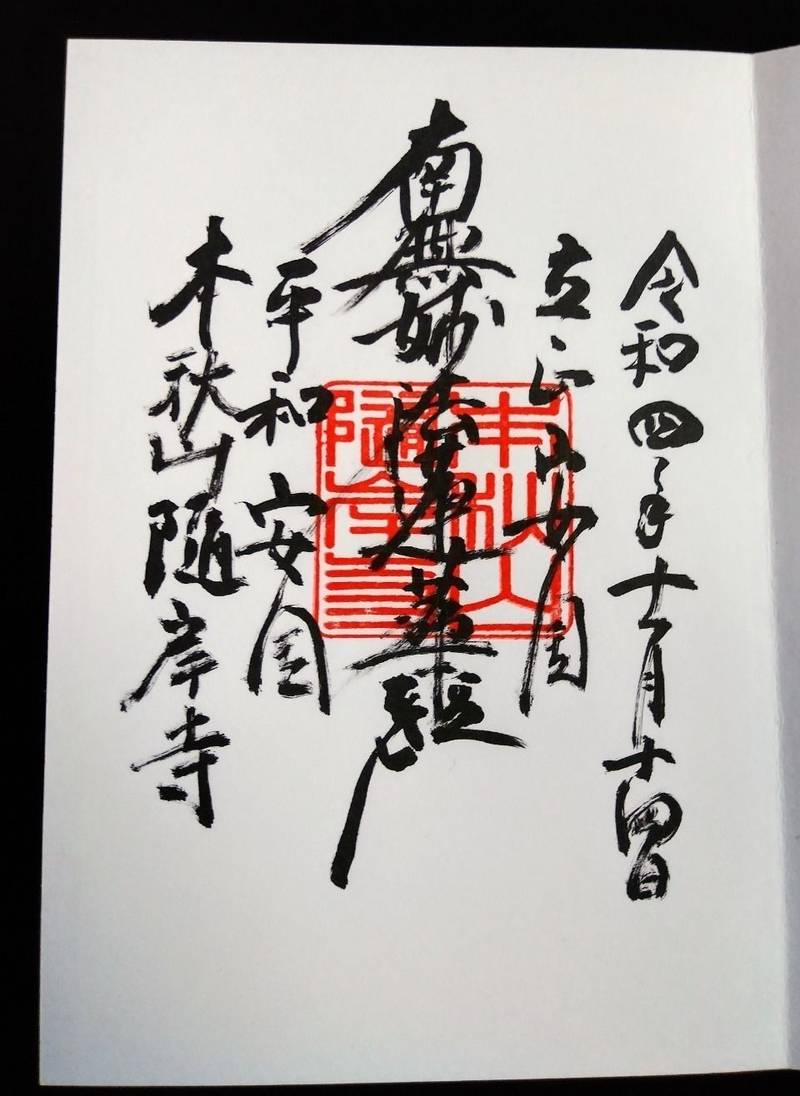 令和四年十一月十四日
立正安国
南無妙法蓮華経
平和安国
本秋山隨岸寺
本秋山